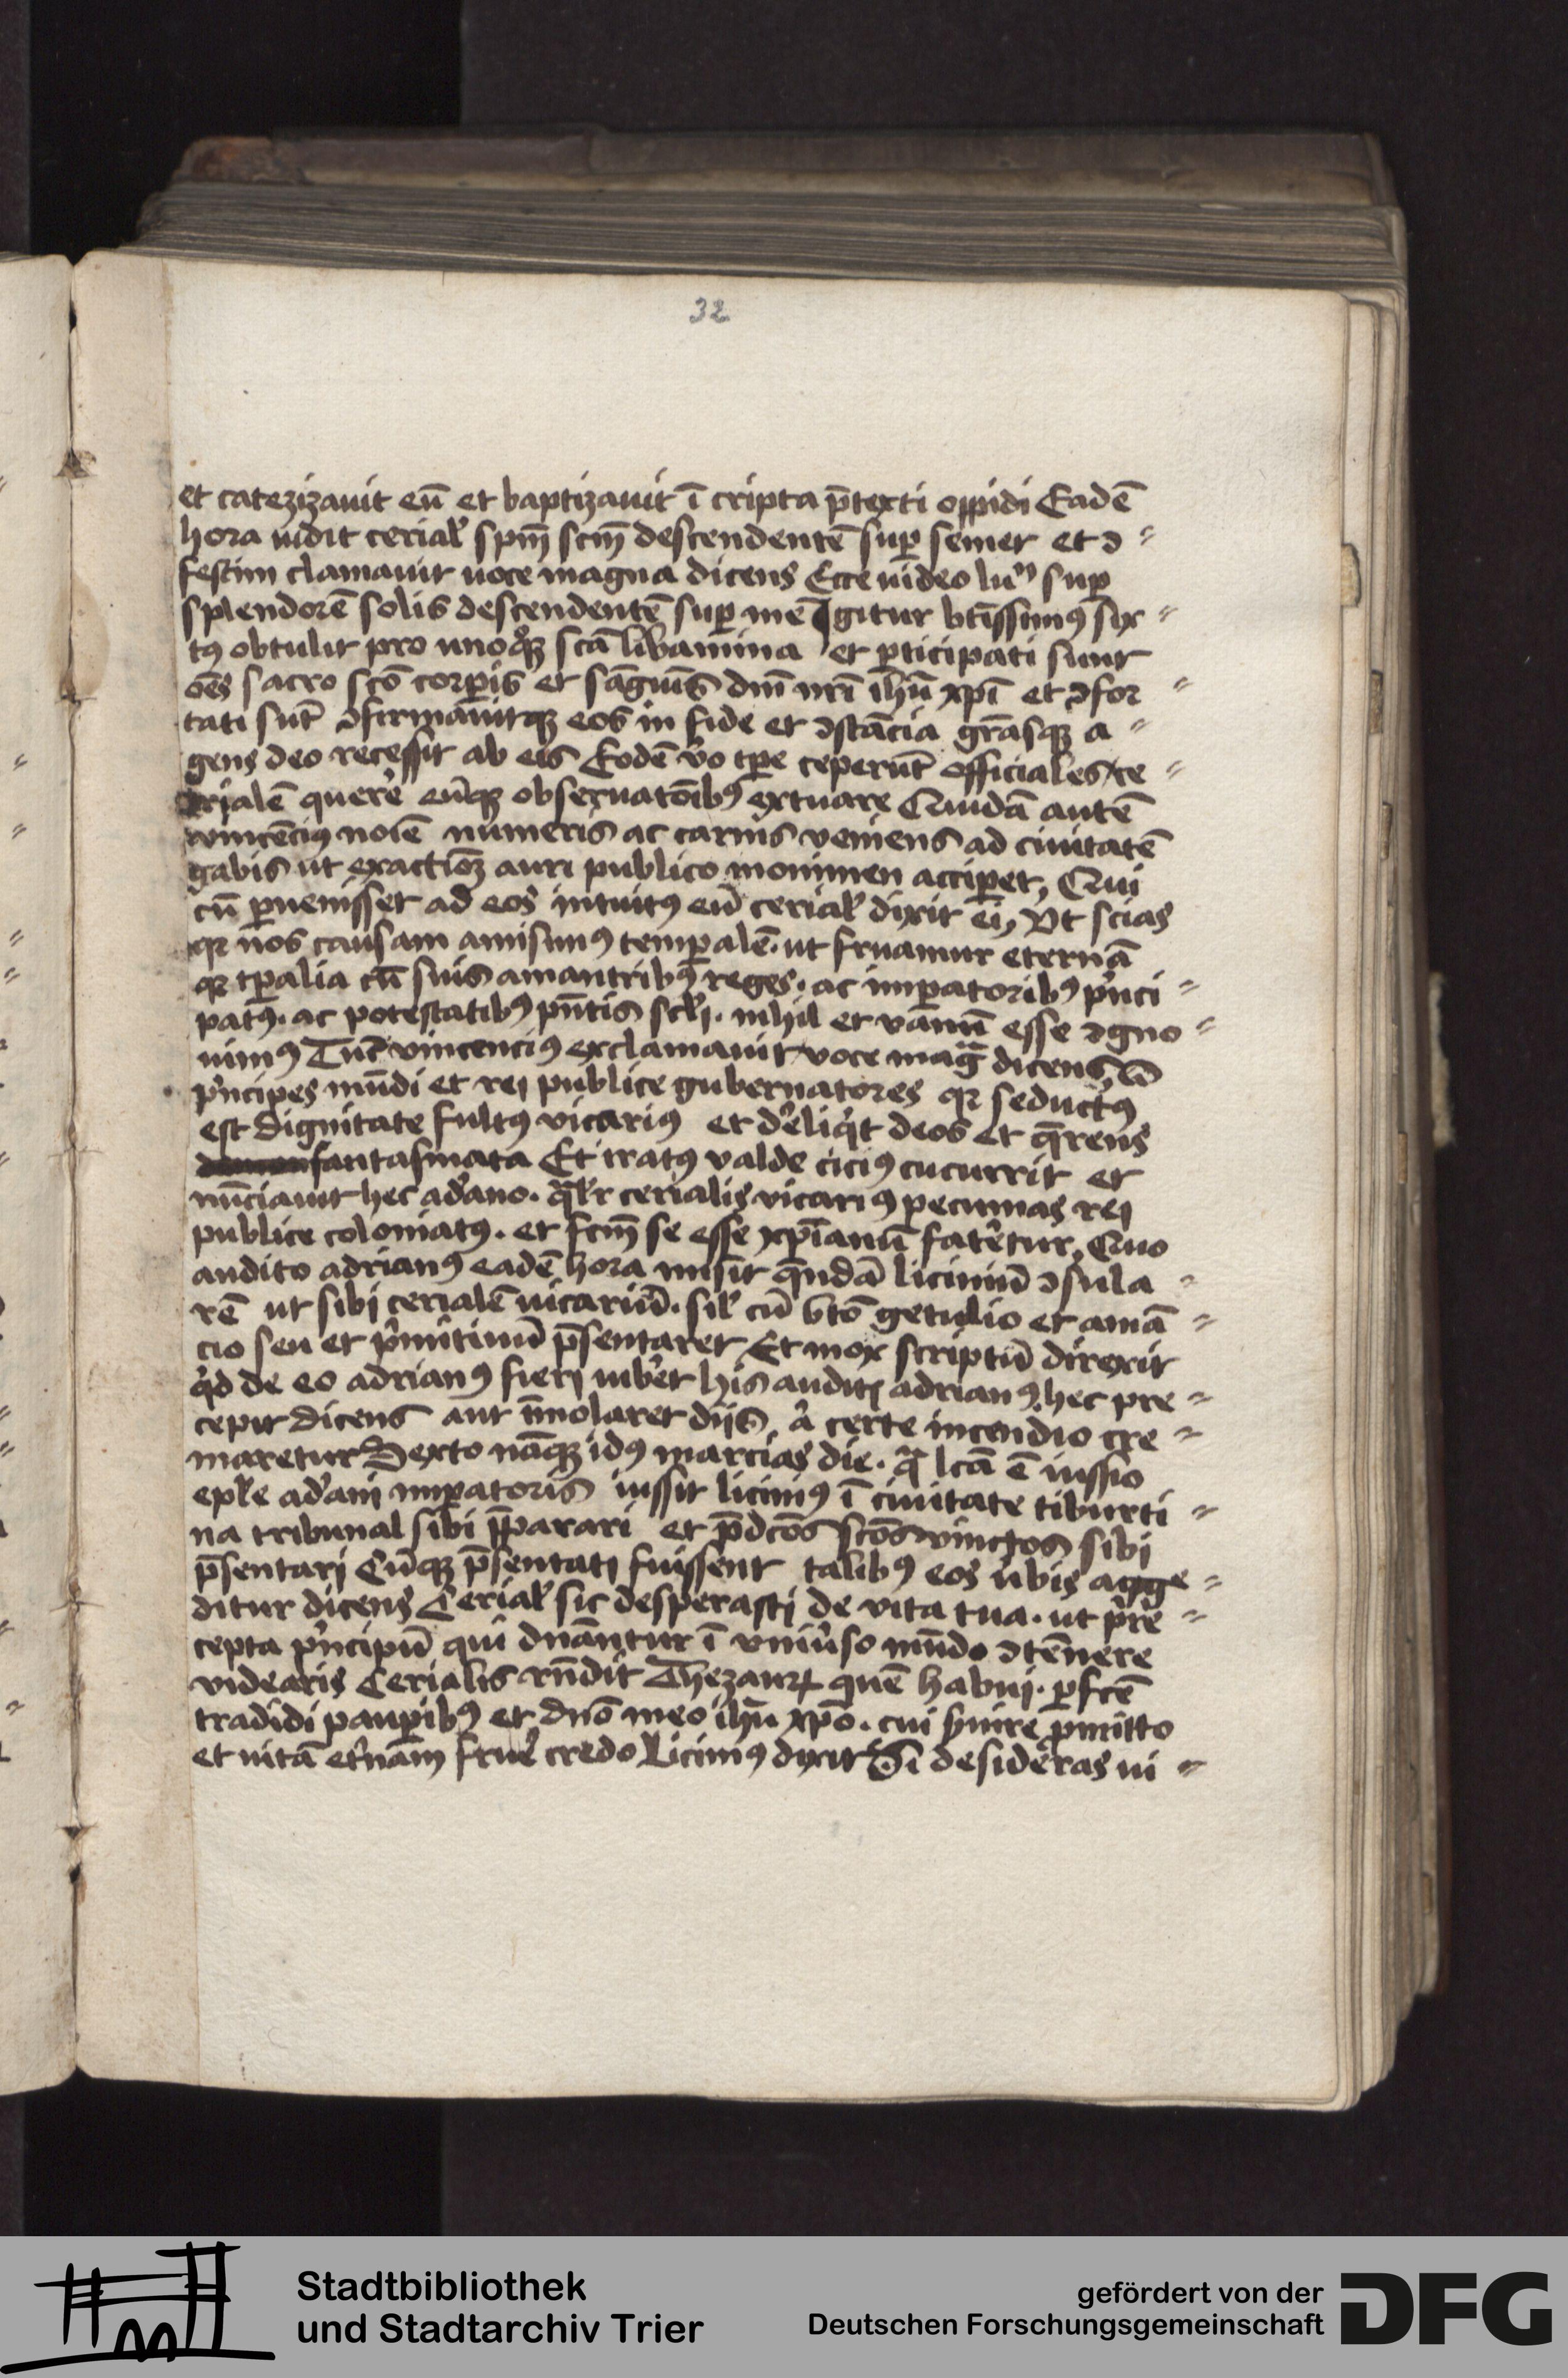 32
et catezizauit eū et baptizauit ī cripta p̄texti oppidi Eadē
hora uidit cerial' spm̄ scm̄ descendentē sup semet et ↄ=
festim clamauit uoce magna dicens Ecce uideo lu sup
splendorē solis descendentē sup me Igitur btīssimꝰ six=
tꝰ obtulit pro unoqͦqꝫ scā libamina et pticipati sunt
oēs sacro scō corpis et sāguis dm̄ nr̄i ihū xpī et ↄfor=
tati sūt ↄfirmauitqꝫ eos in fide et ↄstācia grāsqꝫ a=
gens deo recessit ab eis Eodē v̄o tpe ceperūt officiales ce=
rialē querē cūqꝫ obseruatōibꝰ Quidā autē
vincēciꝰ noīe numeris ac carnis veniens ad ciuitatē
gabis ut exactioꝫ auri publico monimen accipet, Qui
cū puenisset ad eos intuitꝰ eū cerial' dixit ei, Vt scias
qr nos causam amisimꝰ tempalē. ut fruamur eternā
qr tpalia cū suis amantribꝰ reges. ac impatoribꝰ pͥnci=
patꝰ. ac potestatibꝰ pn̄tis scl'i. nihil et vanū esse ↄgno=
uimꝰ Tūc vincenciꝰ exclamauit voce magͣ dicens, O
pͥncipes mūdi et rei publice gubernatores qr seductꝰ
est dignitate fultꝰ vicariꝰ et d'eliqͥt deos et qͣrens
fantasmata Et iratꝰ valde ciciꝰ cucurrit et
nūciauit hec ad'ano. qͣl'r cerialis vicariꝰ pecunias rei
publice coloniatꝰ. et scm̄ se esse xpīanū fat'etur, Quo
audito adrianꝰ eadē hora misit qͣndā liciniū ↄsula=
rē ut sibi cerialē uicariū. sil' cū btō getulio et amā=
cio seu et pͥmitiuū p̄sentaret Et mox scriptū direxit
qͥd de eo adrianꝰ fieri iub'et his auditꝭ adrianꝰ hec pre=
cepit dicens aut īmolaret diis, ā certe incendio cre=
maretur Sexto nāqꝫ idꝰ marcias die. qͣ lcā ē iussio
epl'e ad'ani impatoris iussit liciniꝰ ī ciuitate tiburti=
na tribunal sibi p̄parari et p̄dcōs scōs vinctos sibi
p̄sentari Cūqꝫ p̄sentati fuissent talibꝰ eos ūbis agge=
ditur dicens Cerial' sic desperasti de vita tua. ut p̄re=
cepta pͥncipū qui dnāntur ī vniūso mūdo ↄtēnere
videaris Cerialis rn̄dit Thezaurꝝ quē habui. pfcē
tradidi paupibꝰ et dnō meo ihū xpō. cui s'uire pmitto
et uitā et'nam fru' credo Liciniꝰ dixit Si desid'eras ui=
Stadtbibliothek
und Stadtarchiv Trier
gefördert von der
Deutschen Forschungsgemeinschaft
DFG